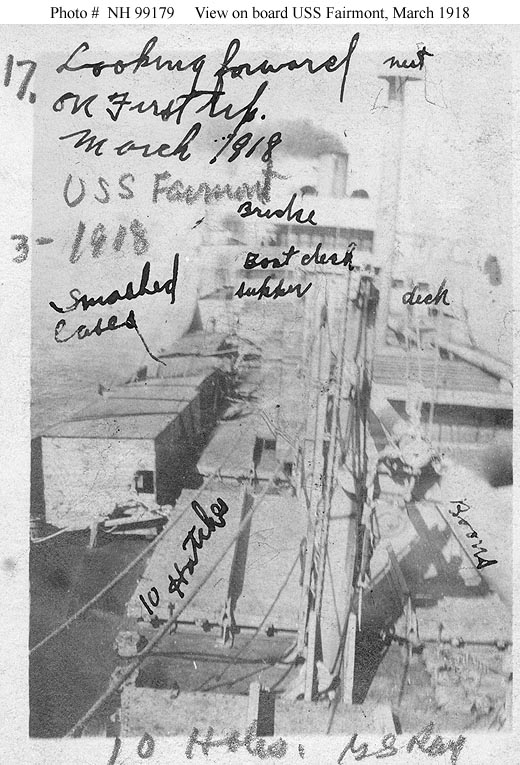 Photo # NH 99179 View on board USS Fairmont, March 1918
17. Looking forward
on First trip.
March 1918
nest
USS Fairmont
3- 1918
Bridge
Boat deck
Smashed
Cases
deck
Boom
10 Hatches
10 Holes.